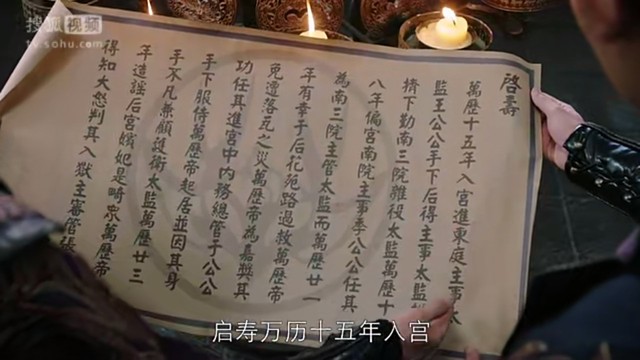 搜狐视频
tv.sohu.com
啓壽
萬歷十五年入宮進東庭主事太
監王公公手下后得主事太監
擠下勤南三院雜役太監萬歷十
八年偏宮南院主事李公公任其
為南三院主管太監而萬歷廿一
年有幸于后花苑路過救萬歷帝
免遭落瓦之災萬歷帝為嘉獎其
功任其進宮中内務總管于公公
手下服侍萬歷帝起居並因其身
手不凡兼顧護衛太監萬歷廿三
年造謠后宮嬪妃是畸戀萬歷帝
得知大怒判其入獄主審管張
启寿万历十五年入宫